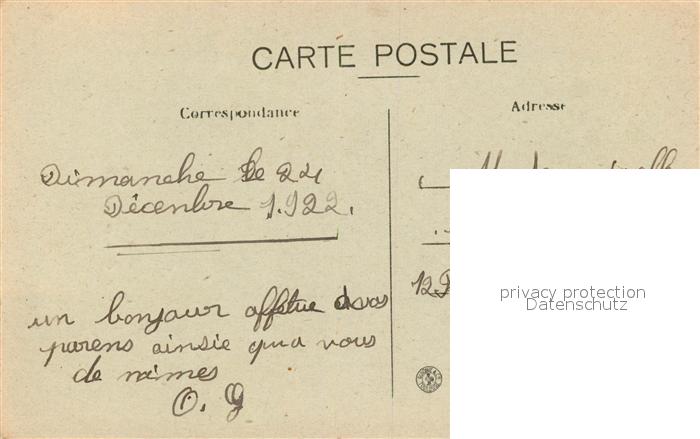 CARTE POSTALE
Correspondance
Adresse
Dimanche le 24
Décenbre 1.922.
un bonjour affetue a vos
parens ainsie qua vous
de mimes
O. G
12
privacy protection
Datenschutz